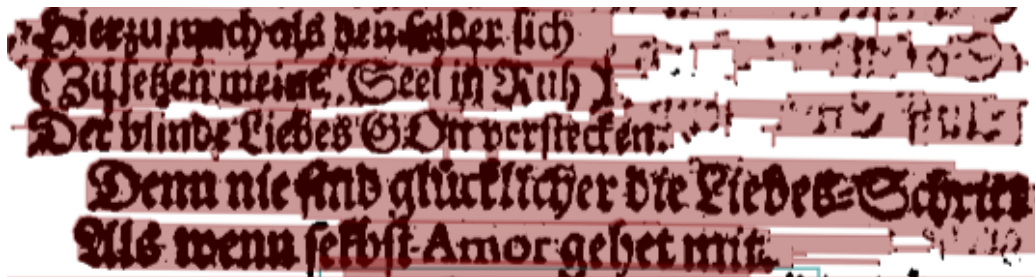 Hierzu mach als den selber sich
(Zu setzen meine Seel in Ruh)
Der blinde Liebes GOtt verstecken.
Denn nie sind glücklicher die Liebes-Schritt
Als wenn selbst Amor gehet mit.